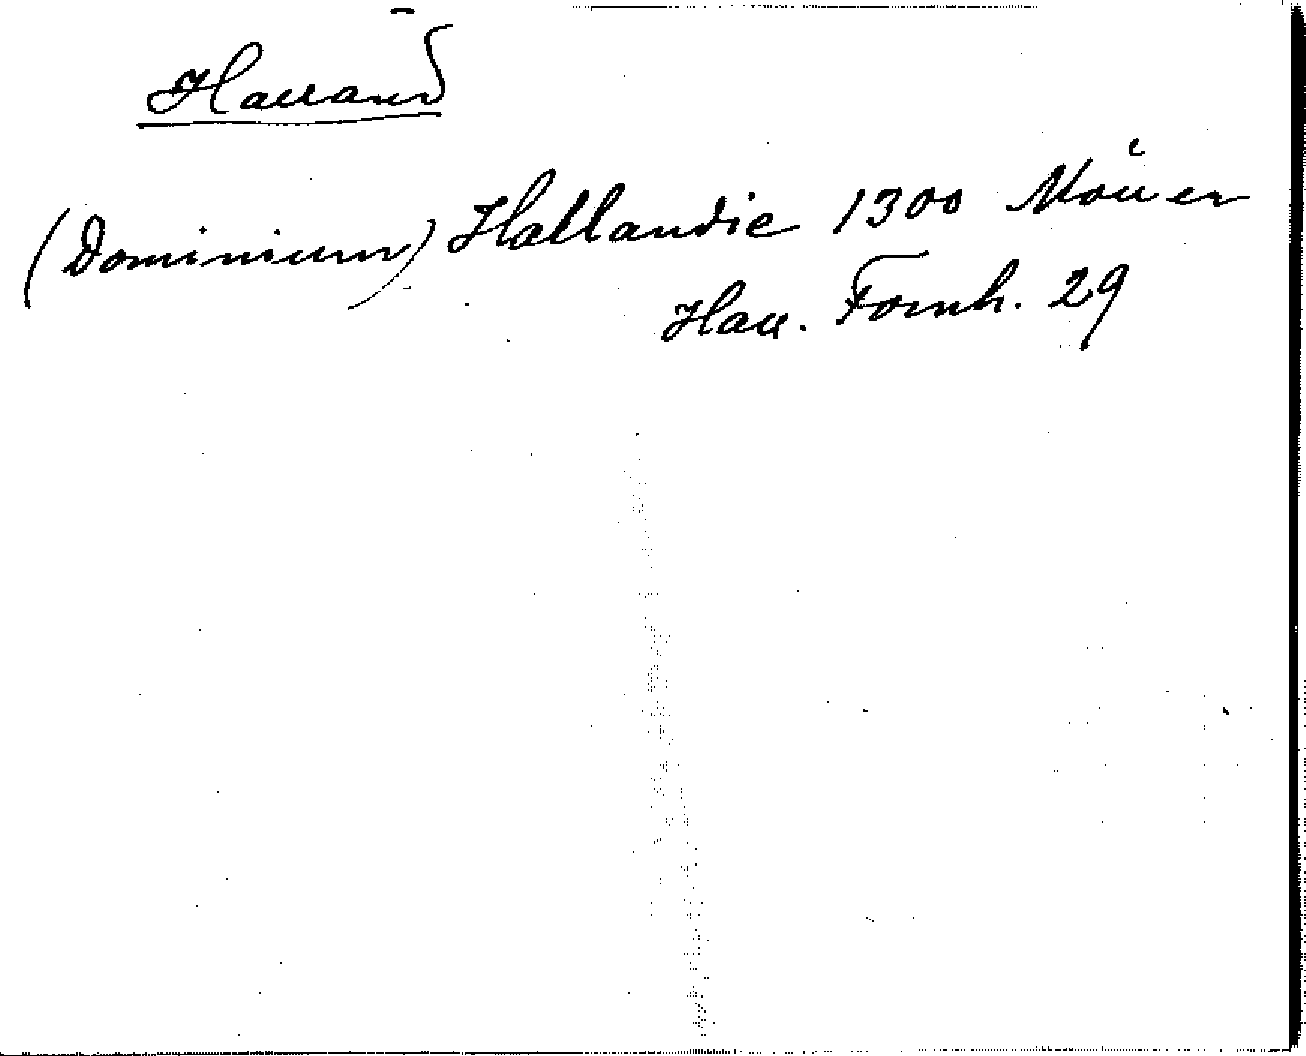 Halland
(Dominium) Hallandie 1300 Möller
Hall. Fornh. 29